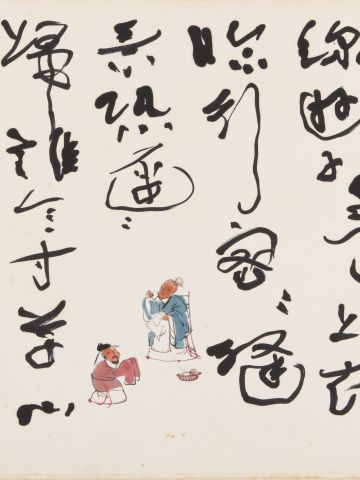 線遊子身上衣
臨行密〻縫
意恐遲〻
歸誰言寸草心